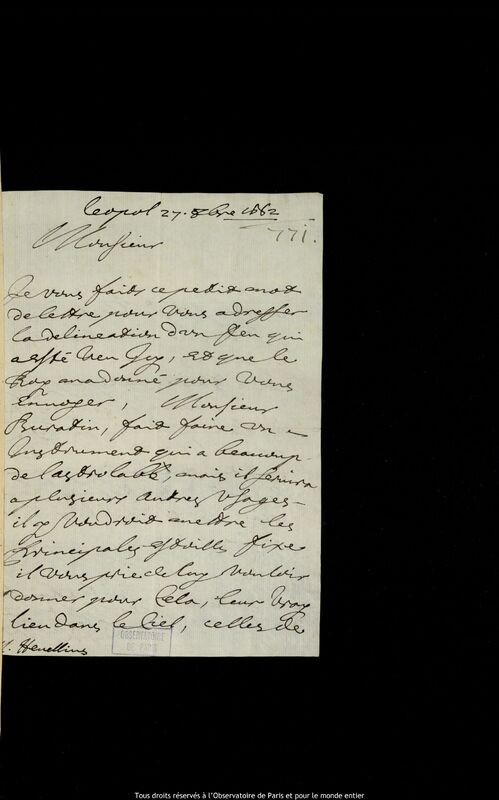 Leopol 27. 8bre 1662
771.
Monsieur
Je vous faits ce petit mot
de lettre pour vous adresser
la delineation d'un feu qui
a esté veu Icy, et que le
Roy m'a donné pour vous
Envoyer, Monsieur
Buratin, fait faire un
Instrument qui a beaucoup
de l'astrolabe, mais il servira
a plusieurs autres usages
il y voudroit mettre les
principales estoilles fixe
il vous prie de luy vouloir
donner pour cela, leur vray
lieu dans le Ciel, celles de
M. Hevellius
OBSERVATOIRE
DE PARIS
Tous droits réservés à l'Observatoire de Paris et pour le monde entier